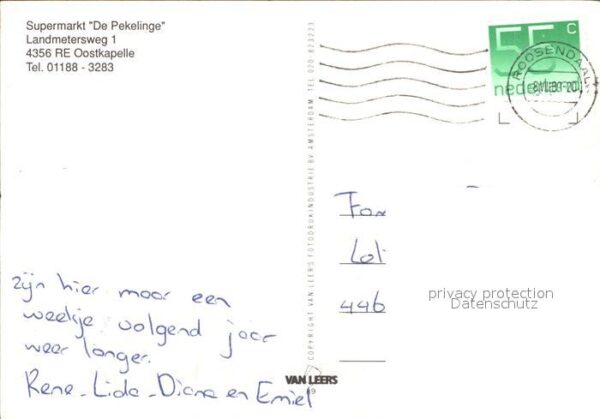 Supermarkt "De Pekelinge"
Landmetersweg 1
4356 RE Oostkapelle
Tel. 01188 - 3283
55 c
nederland
ROOSENDAAL
COPYRIGHT VAN LEERS FOTODRUKINDUSTRIE BV AMSTERDAM TEL 020-823223
Fam
Loli
446
privacy protection
Datenschutz
zijn hier maar een
weekje. volgend jaar
weer langer.
Rene - Lida - Diana en Emiel
VAN LEERS